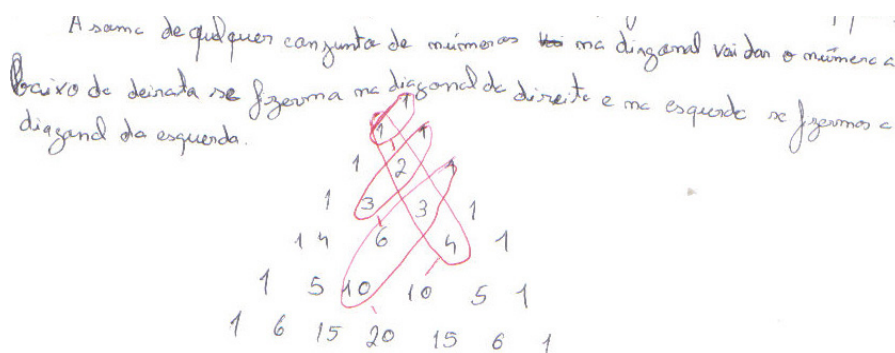 A soma de qualquer conjunto de números na diagonal vai dar o número a
baixo da deireita se fizermo na diagonal da direita e na esquerda se fizermos a
diagonal da esquerda.
1
1 1
1 2 1
1 3 3 1
1 4 6 4 1
1 5 10 10 5 1
1 6 15 20 15 6 1